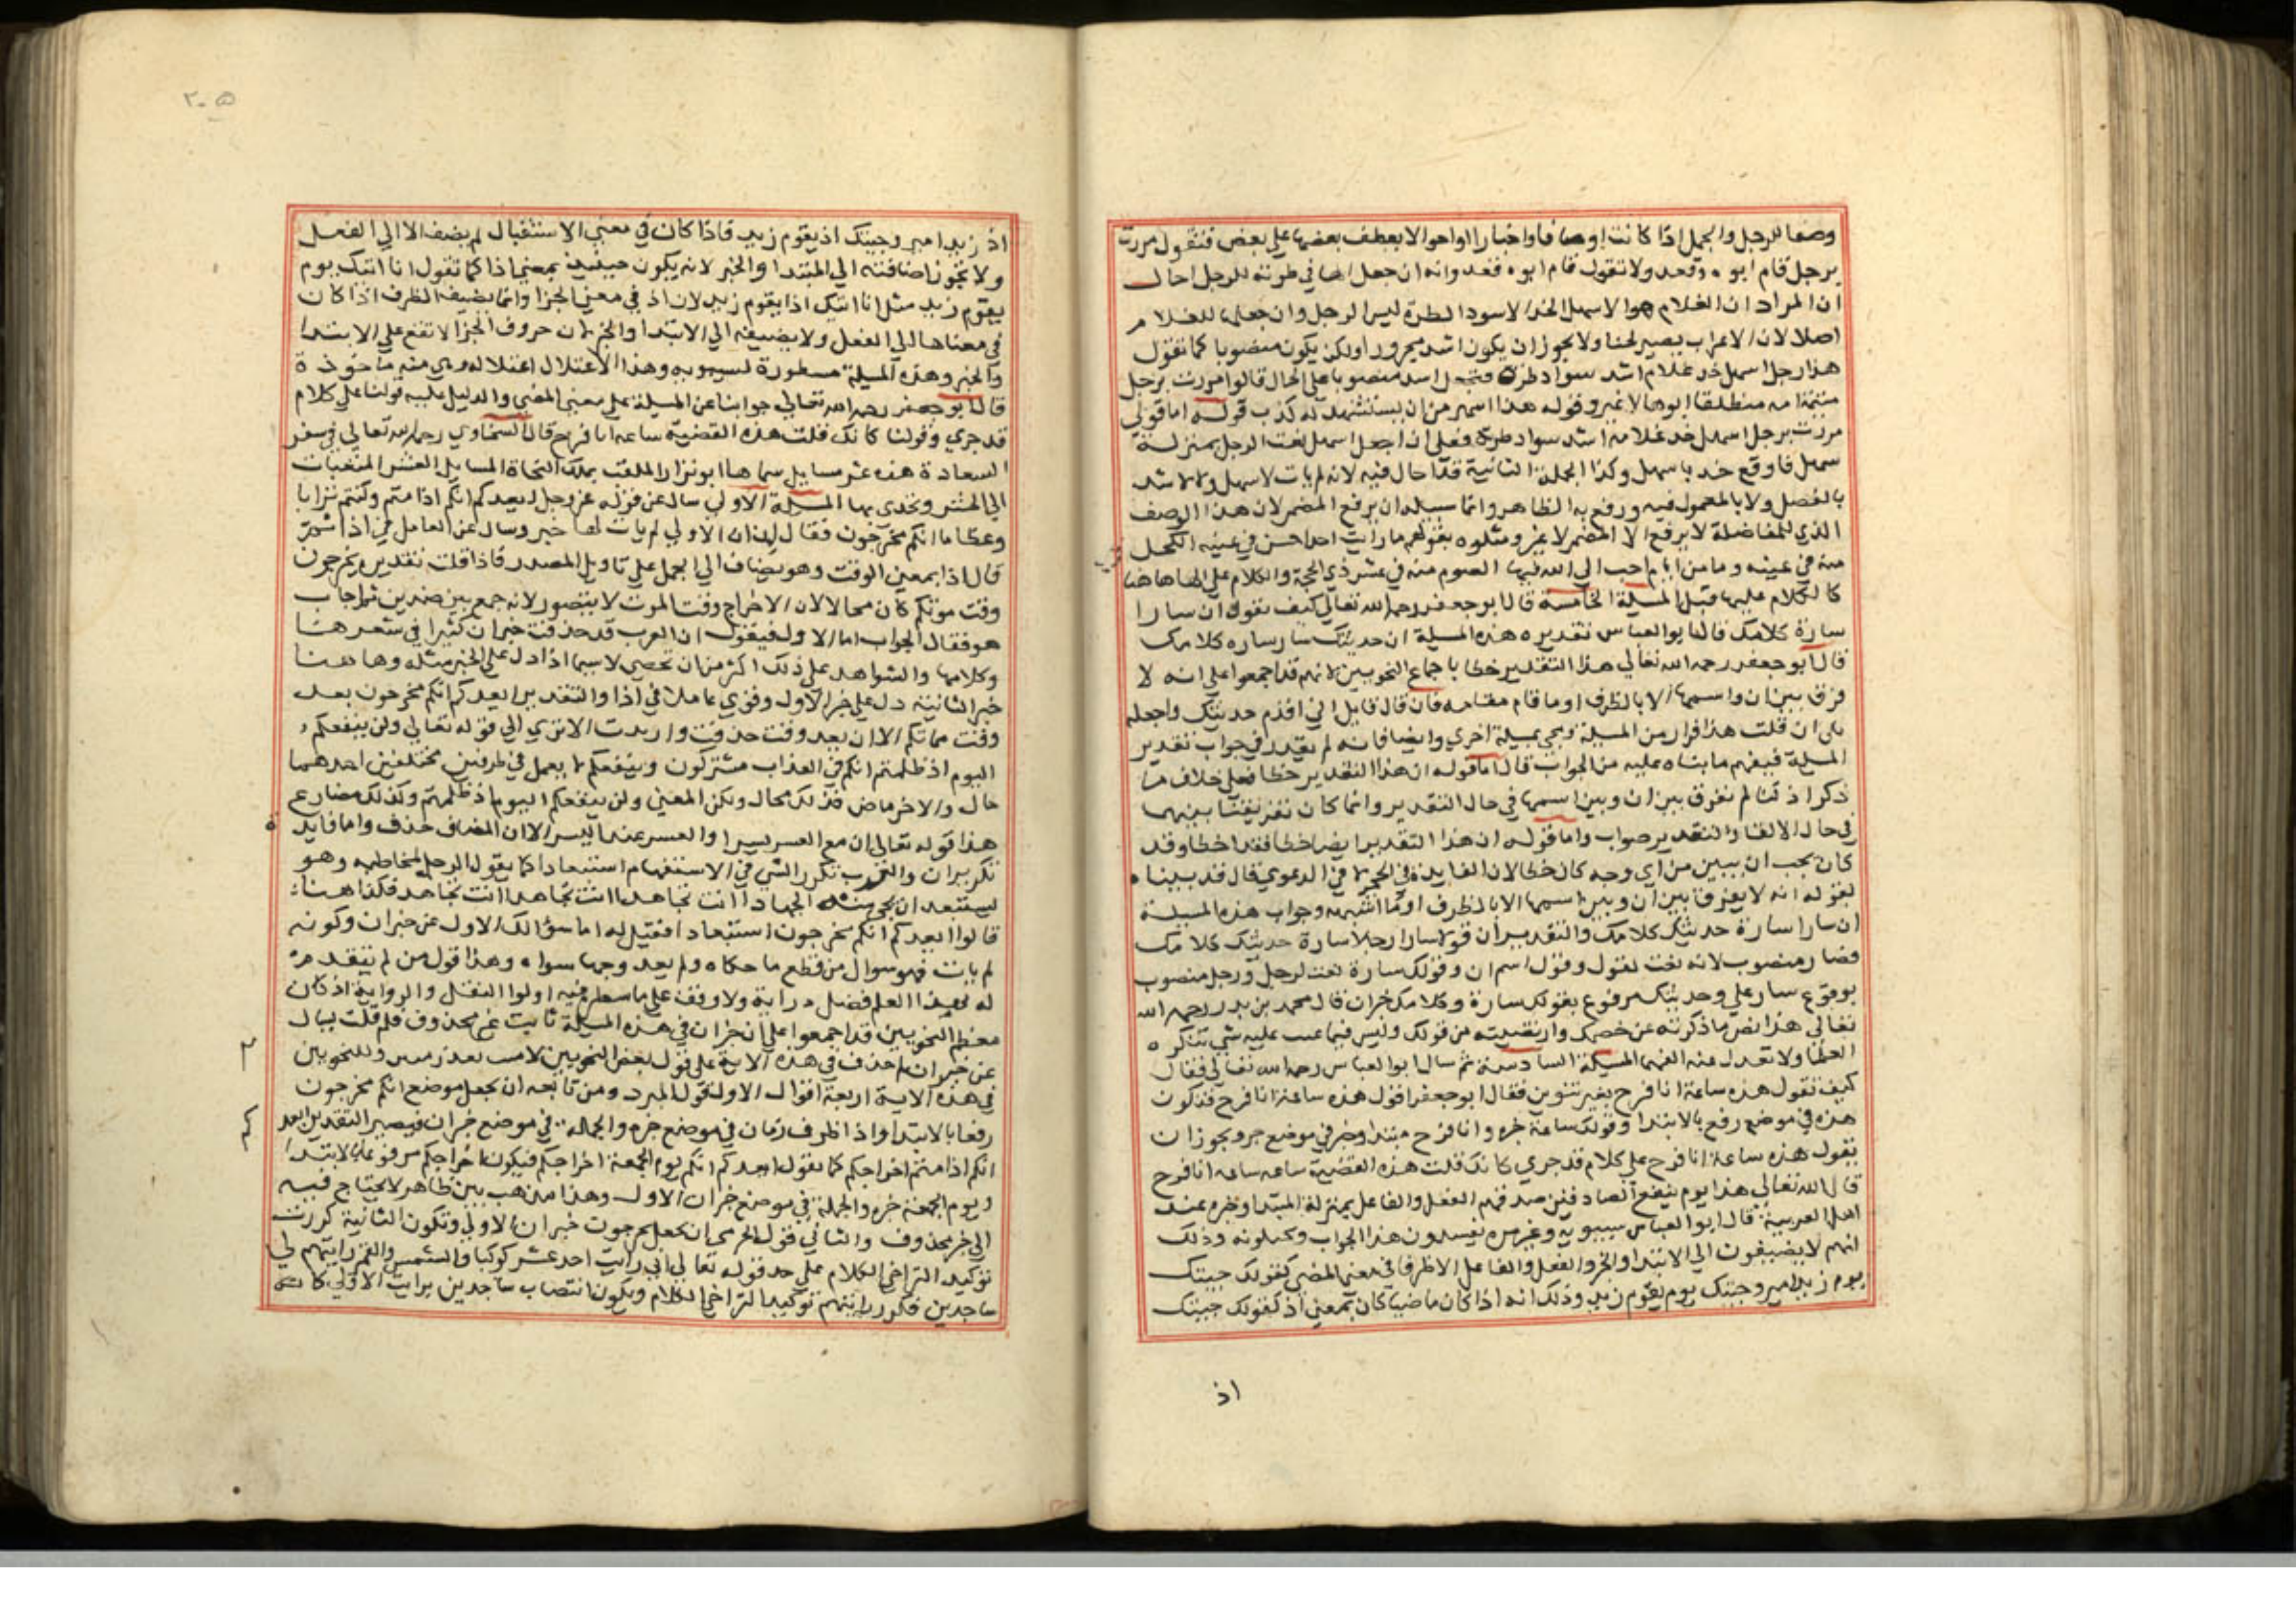 وصفا للرجل والجمل اذا كانت اوصافا واخبارا واحوالا يعطف بعضها علي بعض فتقول مررت
برجل قام ابوه وقعد ولا تقول قام ابوه قعد وانه ان جعل الها في طرته للرجل احال
ان المراد ان الغلام هو الاسهل الخد الاسود الطرة ليس الرجل وان جعلها للغلام
اصلا لان الاعراب يصير لحنا ولا يجوز ان يكون اشد مجرورا ولكن يكون منصوبا كما تقول
هذا رجل اسهل خد غلام اشد سواد طرة اسد منصوبا علي الحال قالوا مررت برجل
منطلقا ابوها لا غير وقوله هذا اسهر من ان يستشهد له كذب قوله اما قولي
مررت برجل اسهل خد غلامه اشد سواد طرة فعلي ان اجعل اسهل نعت الرجل بمنزلة
سهل فاوقع خد باسهل وكذا الجملة الثانية قد احال فيه لانه لم يات لاسهل ولا لاشد
بالفصل ولا بالمعمول فيه ورفع به الظاهر وانما سبيله ان يرفع المضمر لان هذا الوصف
الذي للمفاضلة لا يرفع الا المضمر لا غير ومثلوه بقولهم ما رايت احدا احسن في عينه الكحل
منه في عينه وما من ايام احب الي الله فيها الصوم منه في عشر ذي الحجة والكلام علي الها هاهنا
كالكلام عليها قبل المسيلة الخامسة قال ابو جعفر رحمه الله تعالي كيف تقول ان سارا
سارة كلامك قال ابو العباس تقديره هذه المسيلة ان حديثك سار ساره كلامك
قال ابو جعفر رحمه الله تعالي هذا التقدير خطا باجماع النحويين لانهم قد اجمعوا علي انه لا
فرق بين ان واسمها الا بالظرف او ما قام مقامه فان قال قايل اني اقدم حديثك واجعله
يلي ان قلت هذا فرار من المسيلة ويجي بمسيلة اخري وايضا فانه لم يقدر في جواب تقدير
المسيلة فيفهم ما بناه عليه من الجواب قال اما قوله ان هذا التقدير خطا فعلي خلاف ما
ذكر اذ كنا لم نفرق بين ان وبين اسمها في حال التقدير وانما كان تفريقنا بينهما
في حال الالغا والتقدير صواب واما قوله ان هذا التقدير ايضا خطا فقد اخطا وقد
كان يجب ان يبين من اي وجه كان خطا لان الفايدة في الحجج لا في الدعوي قال قد بينا
بقوله انه لا يفرق بين ان وبين اسمها الا بالظرف او ما اشبهه وجواب هذه المسيلة
ان سارا سارة حديثك كلامك والتقدير ان قولا سارا رجلا سارة حديثك كلامك
فصار منصوب لانه نعت لقول وقول اسم ان وقولك سارة نعت لرجل ورجل منصوب
بوقوع سار علي وحديثك مرفوع بقولك سارة وكلامك خبر ان قال محمد بن بدر رحمه الله
تعالي هذا نص ما ذكرته عن خصمك وارتضيته من قولك وليس فيما عيب عليه شي تنكره
العلما ولا تعدل عنه الفهما المسيلة السادسة ثم سال ابو العباس رحمه الله تعالي فقال
كيف تقول هذه ساعة انا فرح بغير تنوين فقال ابو جعفر اقول هذه ساعة انا فرح فتكون
هذه في موضع رفع بالابتدا وقولك ساعة خبره وانا فرح مبتدا وخبر في موضع جر ويجوز ان
يقول هذه ساعة انا فرح علي كلام قد جري كانك قلت هذه القضية ساعه ساعه انا فرح
قال الله تعالي هذا يوم ينفع الصادقين صدقهم الفعل والفاعل بمنزلة المبتدا وخبره عند
اهل العربية قال ابو العباس سيبويه وغيره يفسدون هذا الجواب ويحيلونه وذلك
انهم لا يضيفون الي الابتدا والخبر والفعل والفاعل الا ظرفا في معني المضي كقولك جيتك
يوم زيد امير وجيتك يوم يقوم زيد وذلك انه اذا كان ماضيا كان بمعني اذ كقولك جيتك
اذ
٢٠٥
اذ زيد امير وجيتك اذ يقوم زيد فاذا كان في معني الاستقبال لم يضف الا الي الفعل
ولا يجوز اضافته الي المبتدا والخبر لانه يكون حينيذ بمعني اذا كما تقول انا اتيك يوم
يقوم زيد مثل انا اتيك اذا يقوم زيد لان اذ في معني الجزا وانما يضيف الظرف اذا كان
في معناها الي الفعل ولا يضيفه الي الابتدا والخبر لان حروف الجزا لا تقع علي الابتدا
والخبر وهذه المسيلة مسطورة لسيبويه وهذا الاعتلال اعتلاله وهي منه ماخوذة
قال ابو جعفر رحمه الله تعالي جوابنا عن المسيلة علي معني المضي والدليل عليه قولنا علي كلام
قد جري وقولنا كانك قلت هذه القضية ساعه انا فرح قال السخاوي رحمه الله تعالي في سفر
السعادة هذه عشر مسايل سماها ابو نزار الملقب بملك النحاة المسايل العشر المتعبات
الي الحشر وتحدي بها المسيلة الاولي سال عن قوله عز وجل ايعدكم انكم اذا متم وكنتم ترابا
وعظاما انكم مخرجون فقال ان الاولي لم يات لها خبر وسال عن العامل في اذا ثم
قال اذا بمعني الوقت وهو يضاف الي الجمل علي تاويل المصدر فاذا قلت تقديره مخرجون
وقت موتكم كان محالا لان الاخراج وقت الموت لا يتصور لانه جمع بين ضدين ثم اجاب
هو فقال الجواب اما الاول فيقول ان العرب قد حذفت خبر ان كثيرا في شعرها
وكلامها والشواهد علي ذلك اكثر من ان تحصي لا سيما اذا دل علي الخبر مثله وهاهنا
خبر الثانية دل علي خبر الاول وقوي عاملا في اذا والتقدير ايعدكم انكم مخرجون بعد
وقت مماتكم الا ان بعد وقت حذفت واريدت الا تري الي قوله تعالي ولن ينفعكم
اليوم اذ ظلمتم انكم في العذاب مشتركون وينفعكم لا يعمل في ظرفين مختلفين احدهما
حال والاخر ماض فذلك محال ولكن المعني ولن ينفعكم اليوم اذ ظلمتم وكذلك مضارع
هذا قوله تعالي ان مع العسر يسرا والعسر عند اليسر الا ان المضاف حذف واما فايدة
تكرير ان والعرب تكرر الشي في الاستفهام استبعادا كما يقول الرجل لمخاطبه وهو
يستبعد ان يجي منه الجهاد اانت تجاهد اانت تجاهد فكذا هنا
قالوا ايعدكم انكم مخرجون استبعادا فقيل له اما سؤالك الاول عن خبر ان وكونه
لم يات فهو سوال من قطع ما حكاه ولم يعد وجها سواه وهذا قول من لم يتقدم
له بهذا العلم فضل دراية ولا وقف علي ما سطره فيه اولوا النقل والرواية اذ كان
معظم النحويين قد اجمعوا علي ان خبر ان في هذه المسيلة ثابت غير محذوف فلم قلت
عن خبر ان حذف في هذه الاية علي قول بعض النحويين وللنحويين
في هذه الاية اربعة اقوال الاول قول المبرد ومن تابعه ان يجعل موضع انكم مخرجون
رفعا بالابتدا واذا ظرف زمان في موضع خبره والجملة في موضع خبر ان فيصير التقدير ايعدكم
انكم اذا متم اخراجكم كما تقول ايعدكم انكم يوم الجمعة اخراجكم فيكون اخراجكم مرفوعا بالابتدا
ويوم الجمعة خبره والجملة في موضع خبر ان الاول وهذا مذهب بين ظاهر لا يحتاج فيه
الي خبر محذوف والثاني قول الجرمي ان تجعل مخرجون خبر ان الاولي وتكون الثانية كررت
توكيد التراخي الكلام علي حد قوله تعالي اني رايت احد عشر كوكبا والشمس والقمر رايتهم لي
ساجدين فكرر رايتهم توكيدا لتراخي الكلام ويكون انتصاب ساجدين برايت الاولي كانه